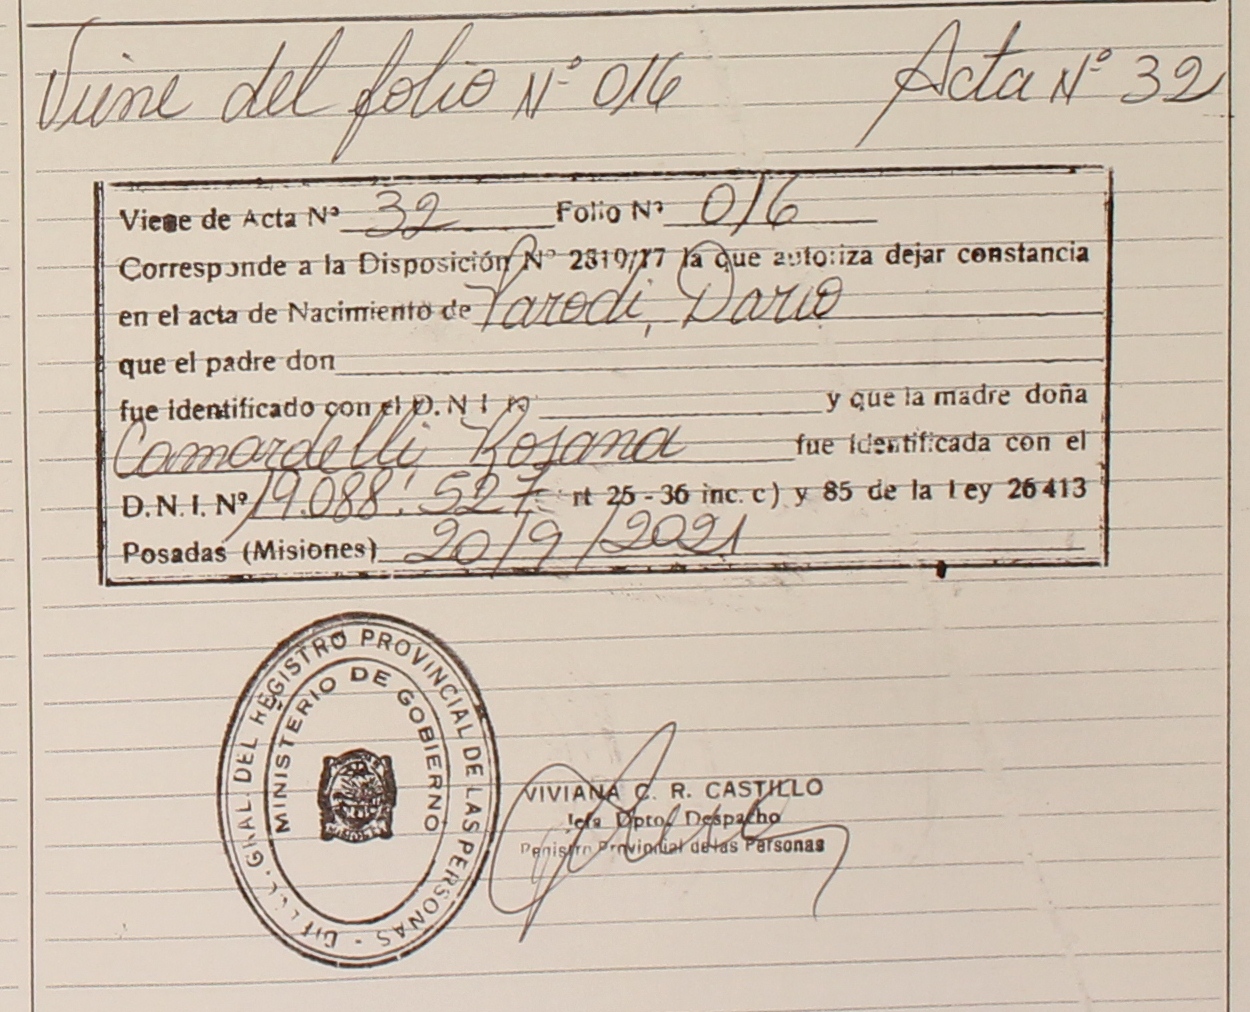 Viene del folio Nº 016 Acta Nº 32
Viene de Acta Nº 32 Folio Nº 016
Corresponde a la Disposición Nº 2310/17 la que autoriza dejar constancia
en el acta de Nacimiento de Parodi, Dario
que el padre don
fue identificado con el D.N.I Nº y que la madre doña
Camardelli, Rosana fue identificada con el
D.N.I. Nº 19.088.527 rt 25-36 inc. c) y 85 de la ley 26413
Posadas (Misiones) 20/9/2021
GRAL. DEL REGISTRO PROVINCIAL DE LAS PERSONAS -
MINISTERIO DE GOBIERNO
VIVIANA C. R. CASTILLO
Jefa Dpto. Despacho
Registro Provincial de las Personas